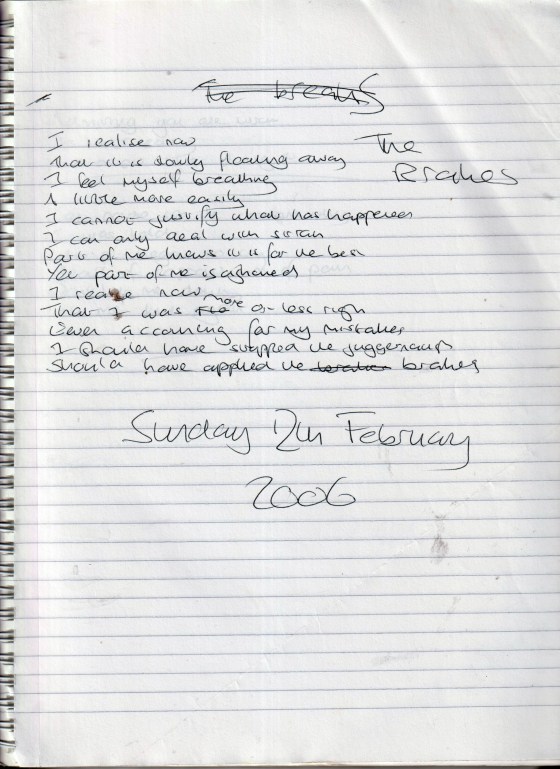 The breaks
The
Brakes
I realise now
That it is slowly floating away
I feel myself breathing
A little more easily
I cannot justify what has happened
I can only deal with
Part of me knows it is for the best
Yet part of me is ashamed
I realise now
That I was the more or less right
Even accounting for my mistakes
I should have stopped the juggernaut
Should have applied the brakes
Sunday 12th February
2006